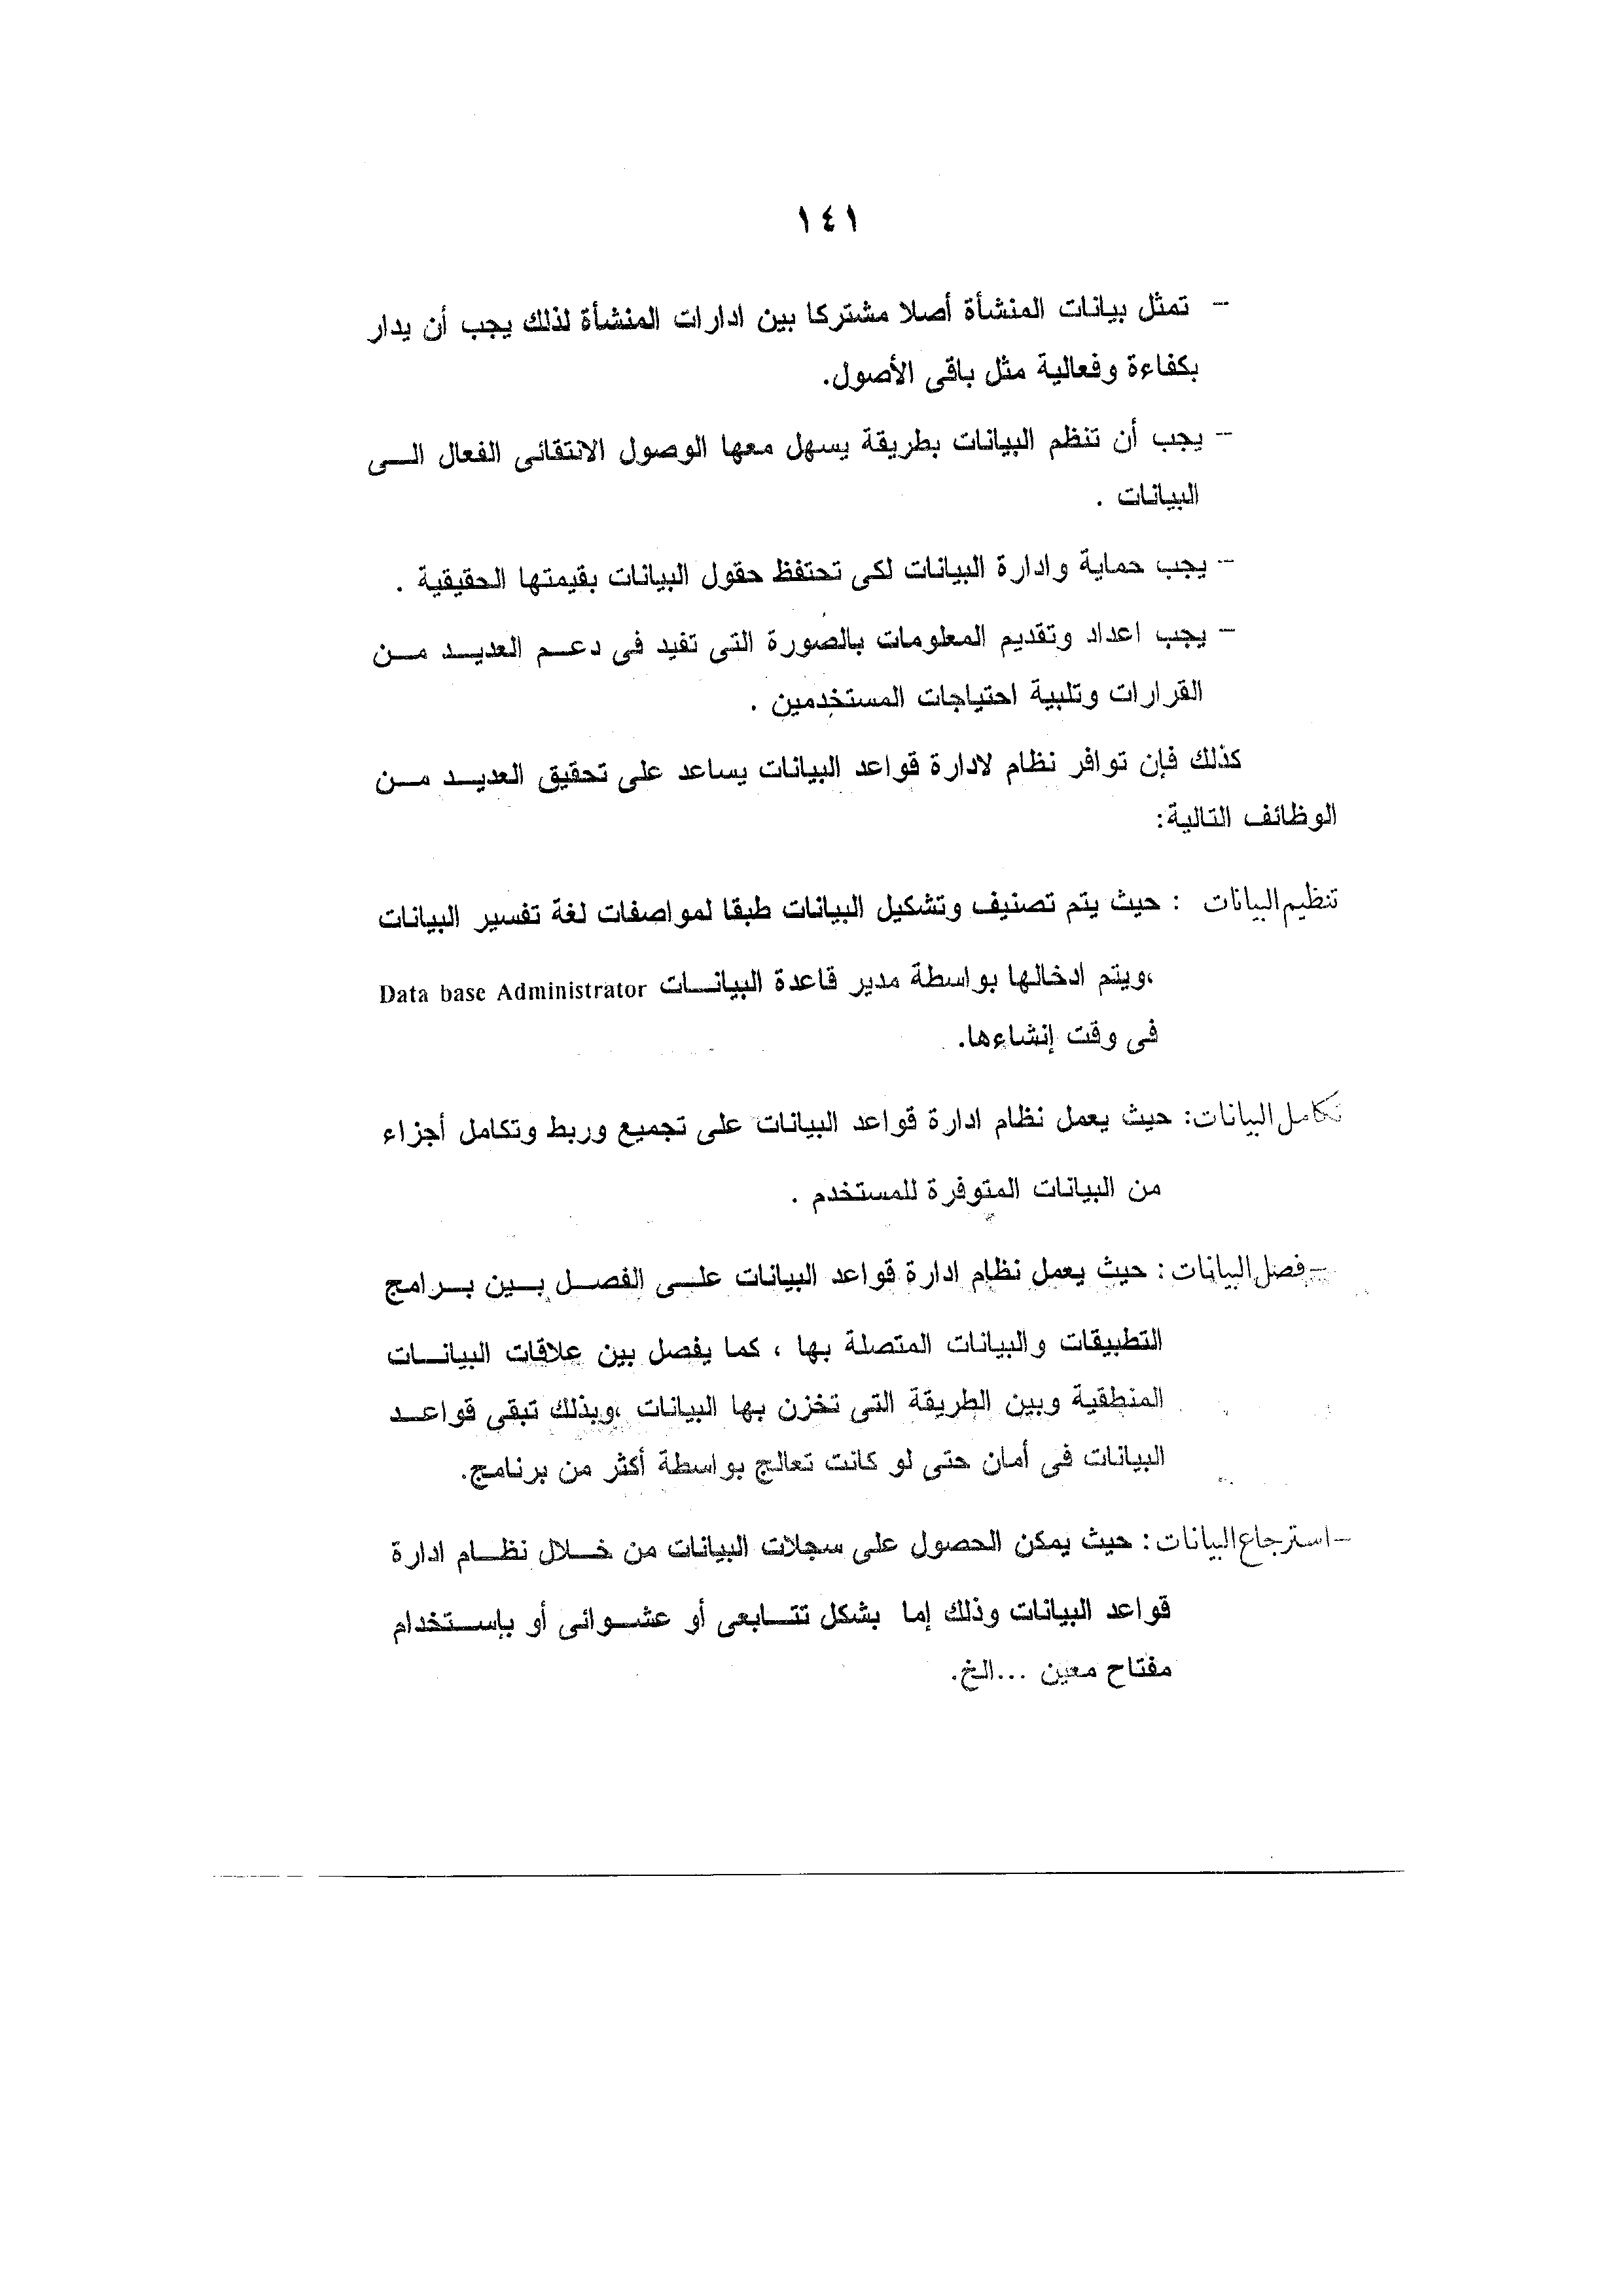 ١٤١
- تمثل بيانات المنشأة أصلا مشتركا بين ادارات المنشأة لذلك يجب أن يدار
بكفاءة وفعالية مثل باقى الأصول.
- يجب أن تنظم البيانات بطريقة يسهل معها الوصول الانتقائى الفعال الى
البيانات .
- يجب حماية وادارة البيانات لكى تحتفظ حقول البيانات بقيمتها الحقيقية .
- يجب اعداد وتقديم المعلومات بالصورة التى تفيد فى دعم العديد من
القرارات وتلبية احتياجات المستخدمين .
كذلك فإن توافر نظام لادارة قواعد البيانات يساعد على تحقيق العديد من
الوظائف التالية:
تنظيم البيانات : حيث يتم تصنيف وتشكيل البيانات طبقا لمواصفات لغة تفسير البيانات
،ويتم ادخالها بواسطة مدير قاعدة البيانات Data base Administrator
فى وقت إنشاءها.
تكامل البيانات: حيث يعمل نظام ادارة قواعد البيانات على تجميع وربط وتكامل أجزاء
من البيانات المتوفرة للمستخدم .
- فصل البيانات : حيث يعمل نظام ادارة قواعد البيانات على الفصل بين برامج
التطبيقات والبيانات المتصلة بها ، كما يفصل بين علاقات البيانات
المنطقية وبين الطريقة التى تخزن بها البيانات ،وبذلك تبقى قواعد
البيانات فى أمان حتى لو كانت تعالج بواسطة أكثر من برنامج.
- استرجاع البيانات : حيث يمكن الحصول على سجلات البيانات من خلال نظام ادارة
قواعد البيانات وذلك إما بشكل تتابعى أو عشوائى أو بإستخدام
مفتاح معين ...الخ.